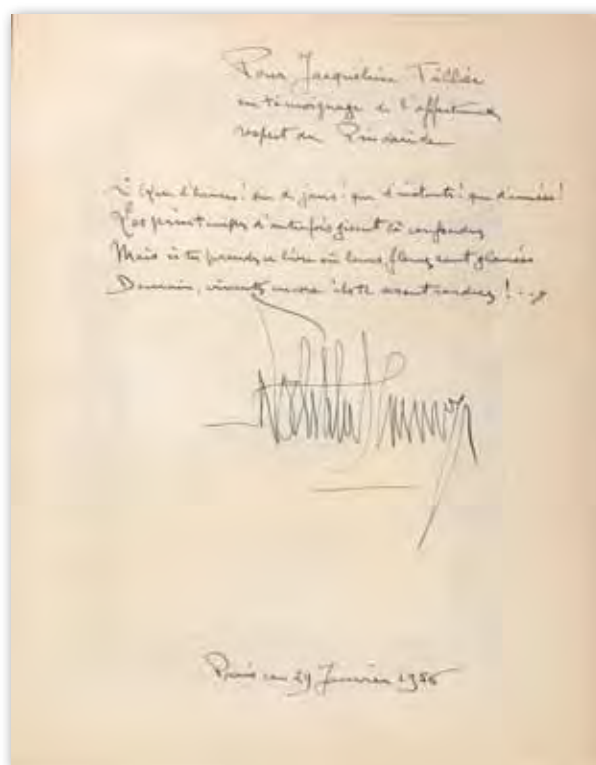 Pour Jacqueline Tillée
en témoignage de l'affectueux
respect du
que d'heures! que de jours! que d'instants! que d'années!
Les printemps d'autrefois gisent là confondus
Mais si tu prends ce livre où leurs fleurs sont glanées
Demain, vivants encore ils te seront rendus!...
Paris ce 29 Janvier 1956